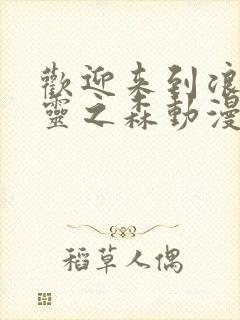 歡迎来到浪
靈之森動漫
稻草人偶